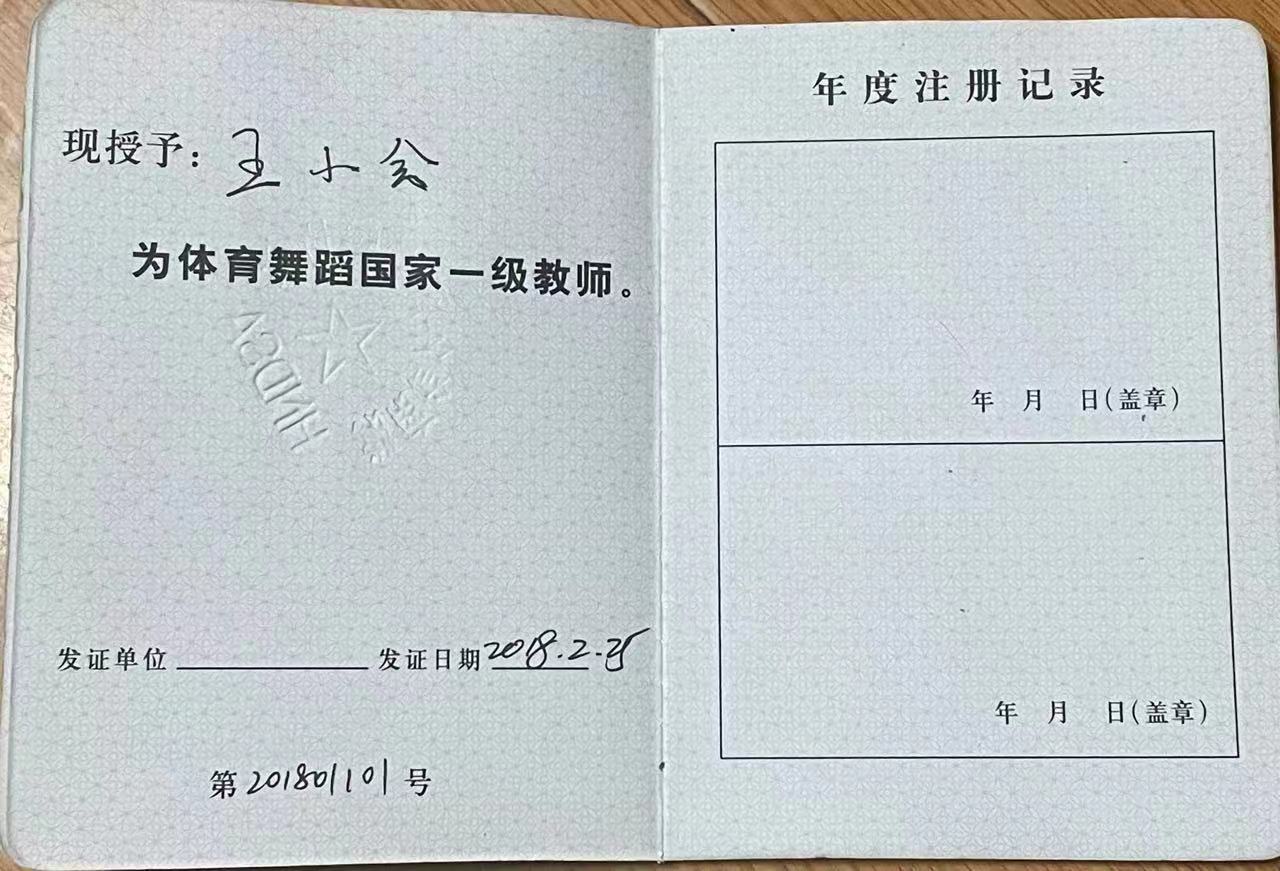 现授予：王小会
为体育舞蹈国家一级教师。
HNDSA
发证单位 发证日期 2018.2.25
第 201801101 号
年度注册记录
年 月 日(盖章)
年 月 日(盖章)